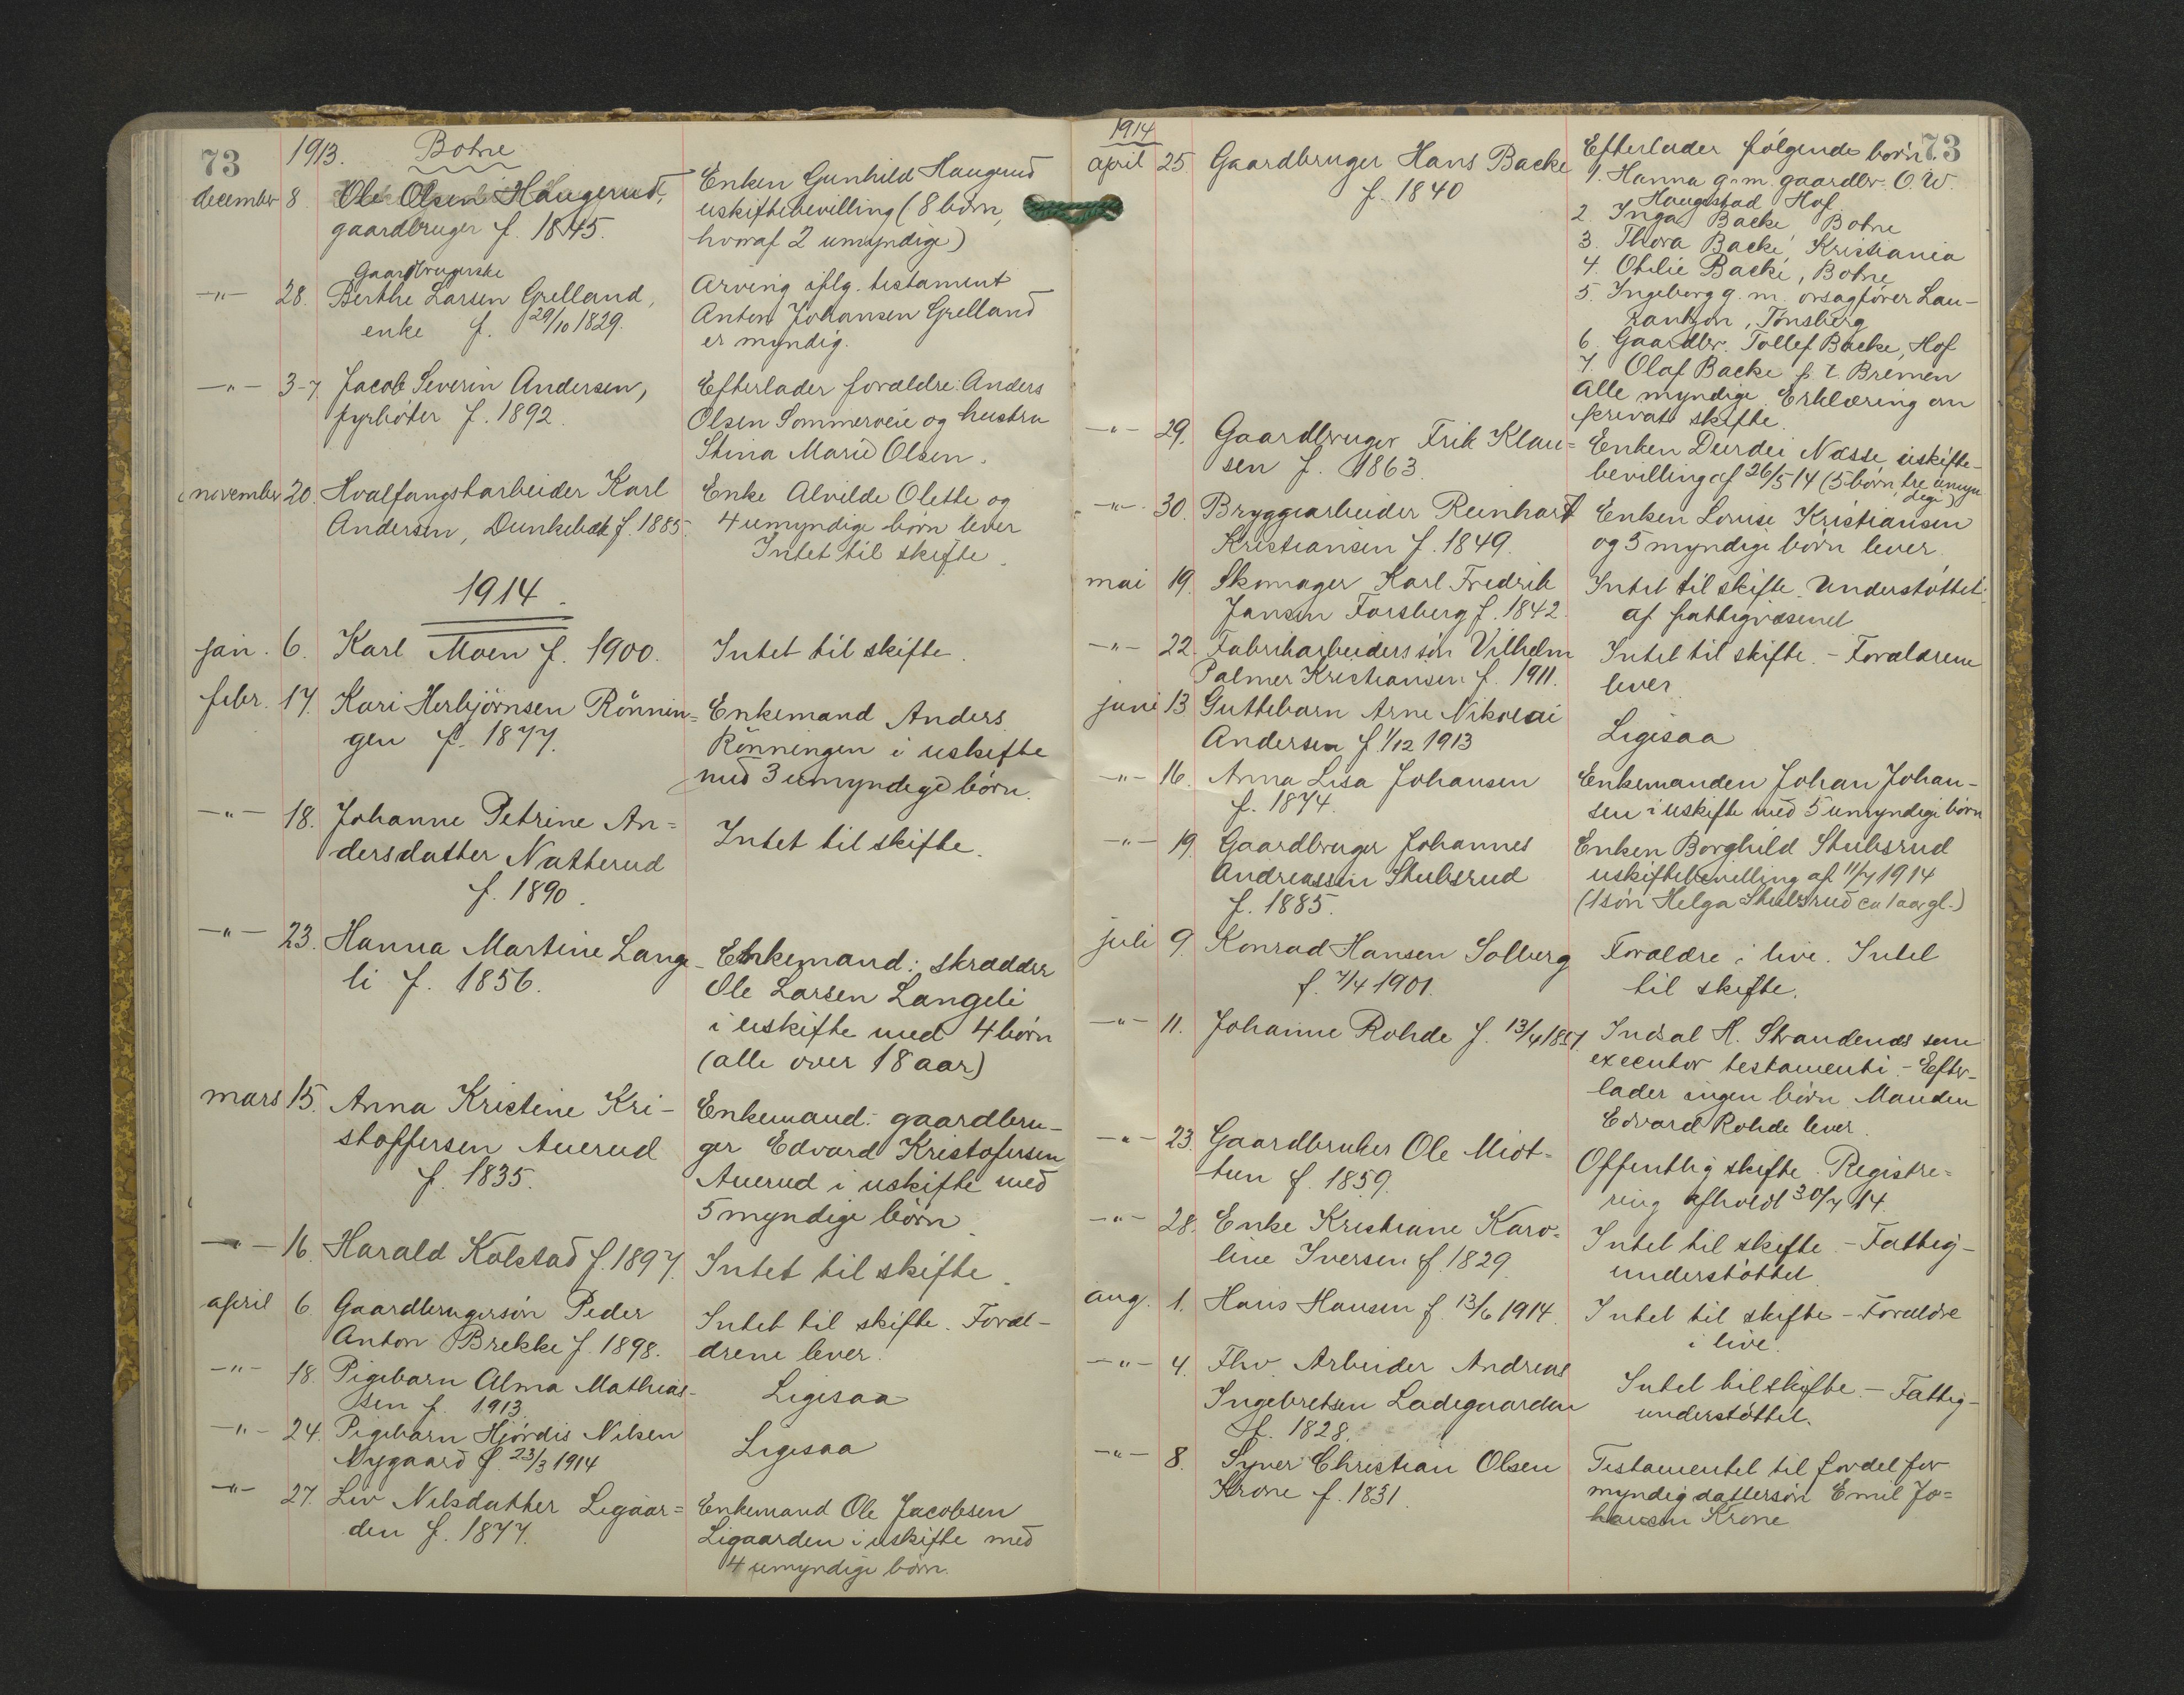 73
1913. Botne
december 8. Ole Olsen Haugerud,
gaardbruger f. 1845.
Enken Gunhild Haugerud
uskiftebevilling (8 børn,
hvoraf 2 umyndige)
Gaardbrugerske
-"- 28. Berthe Larsen Grelland,
enke f. 29/10 1829.
Arving iflg. testament
Anton Johansen Grelland
er myndig.
-"- 3-7. Jacob Severin Andersen,
fyrbøter f. 1892.
Efterlader forældre: Anders
Olsen Sommerveie og hustru
Stina Marie Olsen.
november 20. Hvalfangstarbeider Karl
Andersen, f. 1885.
Enke Alvilde Olette og
4 umyndige børn lever
Intet til skifte.
1914.
jan. 6. Karl Moen f. 1900.
Intet til skifte.
febr. 17. Kari Herbjörnsen Rönnin=
gen f. 1877.
Enkemand Anders
Rönningen i uskifte
med 3 umyndige børn.
-"- 18. Johanne Petrine An=
dersdatter Natterud
f. 1890.
Intet til skifte.
-"- 23. Hanna Martine Lange-
li f. 1856.
Enkemand: skrædder
Ole Larsen Langeli
i uskifte med 4 børn
(alle over 18 aar)
mars 15. Anna Kristine Kri-
stoffersen Auerud
f. 1835.
Enkemand: gaardbru-
ger Edvard Kristofersen
Auerud i uskifte med
5 myndige børn.
-"- 16. Harald Kolstad f. 1897.
Intet til skifte.
april 6. Gaardbrugersøn Peder
Anton Brekke f. 1898.
Intet til skifte. Foræl-
drene lever.
-"- 18. Pigebarn Alma Mathias-
sen f. 1913.
Ligesaa
-"- 24. Pigebarn Hjördis Nilsen
Nygaard f. 23/3 1914
Ligesaa
-"- 27. Liv Nilsdatter Ligaar=
den f. 1877.
Enkemand Ole Jacobsen
Ligaarden i uskifte med
4 umyndige børn.
73
1914
april 25. Gaardbruger Hans Backe
f. 1840
Efterlader følgende børn:
1. Hanna g.m. gaardbr. O. W.
Haugestad Hof
2. Inga Backe, Botne
3. Thora Backe, Kristiania
4. Otilie Backe, Botne
5. Ingeborg g. m. orsagfører Lau-
rantzon, Tønsberg
6. Gaardbr. Tollef Backe, Hof
7. Olaf Backe p. t. Bremen
Alle myndige. Erklæring om
privat skifte.
-"- 29. Gaardbruger Frik Klau=
sen f. 1863.
Enken Næsse uskifte-
bevilling af 26/5-14 (5 børn, tre umyn
dige)
-"- 30. Bryggearbeider Reinhart
Kristiansen f. 1849.
Enken Lovise Kristiansen
og 5 myndige børn lever.
mai 19. Skomager Karl Fredrik
Jansen Forsberg f. 1842.
Intet til skifte. Understøttet
af fattigvæsenet
-"- 22. Fabrikarbeiders søn Vilhelm
Palmer Kristiansen f. 1911.
Intet til skifte. - Forældrene
lever.
juni 13 Guttebarn Arne Nikolai
Andersen f. 1/12 1913
Ligesaa
-"- 16. Anna Lisa Johansen
f. 1874.
Enkemanden Johan Johan-
sen i uskifte med 5 umyndige børn
-"- 19. Gaardbruger Johannes
Andreassen Stubsrud
f. 1885.
Enken Borghild Stubsrud
uskiftebevilling af 11/7 1914
(1 søn Helge Stubsrud ca 1 aar gl.)
juli 9. Konrad Hansen Solberg
f. 7/4 1901.
Forældre i live. Intet
til skifte.
-"- 11. Johanne Rohde f. 13/4 1857.
A. Strandenæs som
executor testamenti. - Efter-
lader ingen børn. Manden
Edvard Rohde lever.
-"- 23. Gaardbruker Ole Midt-
tun f. 1859.
Offentlig skifte. Registre=
ring afholdt 30/7 14.
-"- 28. Enke Kristiane Karo=
line Iversen f. 1829.
Intet til skifte. - Fattig-
understøttet.
aug. 1. Hans Hansen f. 13/6 1914.
Intet til skifte - Forældre
i live.
-"- 4. Fhv. Arbeider Andreas
Ingebretsen Ladegaarden
f. 1828.
Intet til skifte. - Fattig-
understøttet.
-"- 8. Syver Christian Olsen
Krone f. 1831.
Testamentet til fordel for
myndig dattersøn Emil Jo=
hansen Krone